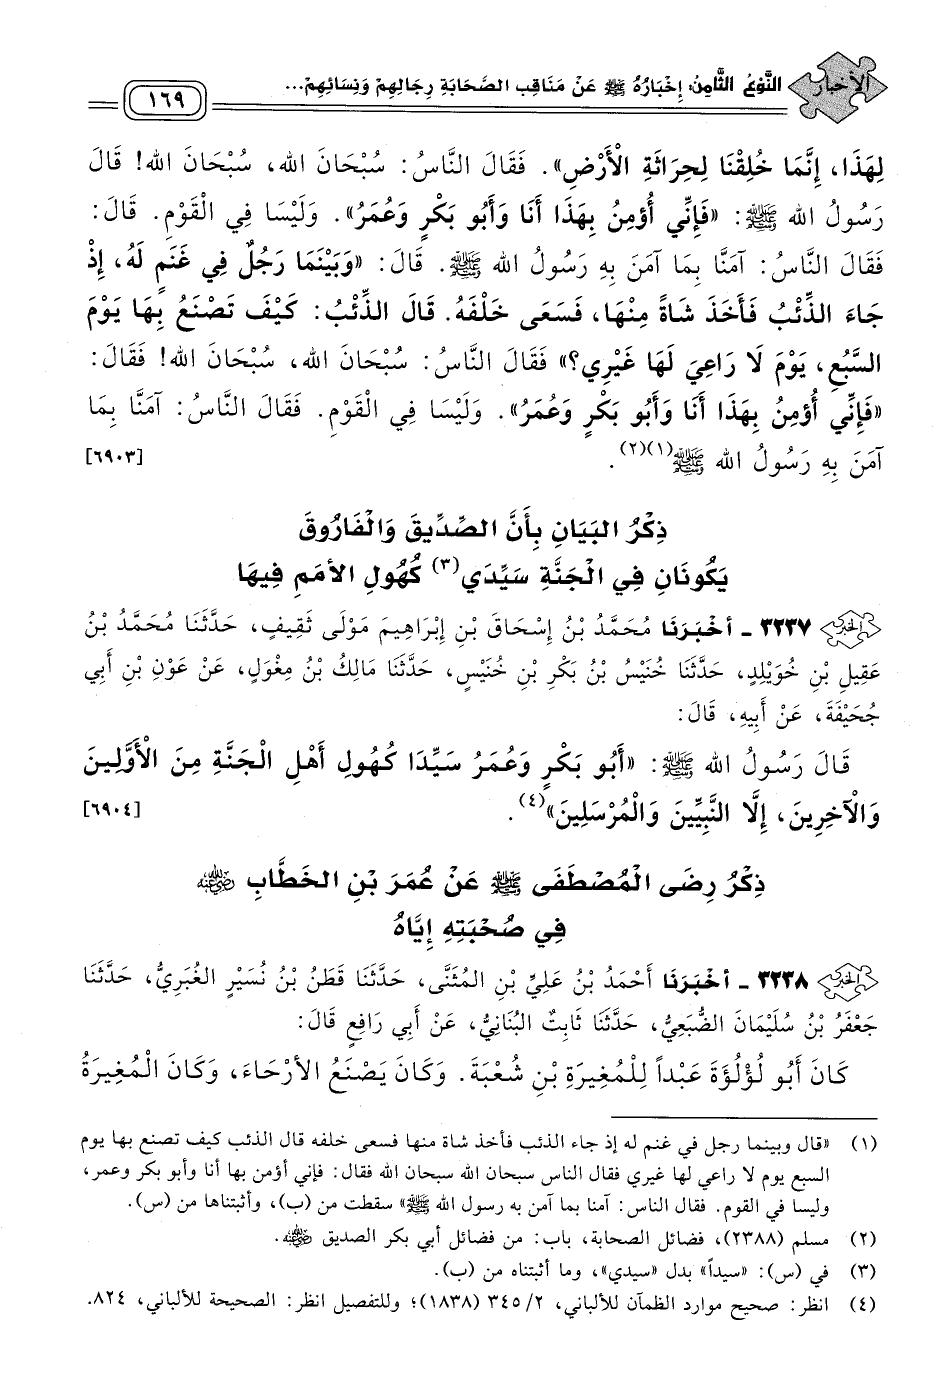 الأخبار
النَّوْعُ الثَّامِنُ: إِخْبَارُهُ ﷺ عَنْ مَنَاقِبِ الصَّحَابَةِ رِجَالِهِمْ وَنِسَائِهِمْ...
١٦٩
لِهَذَا، إِنَّمَا خُلِقْنَا لِحِرَاثَةِ الْأَرْضِ». فَقَالَ النَّاسُ: سُبْحَانَ الله، سُبْحَانَ الله! قَالَ
رَسُولُ الله ﷺ: «فَإِنِّي أُؤْمِنُ بِهَذَا أَنَا وَأَبُو بَكْرٍ وَعُمَرُ». وَلَيْسَا فِي الْقَوْمِ. قَالَ:
فَقَالَ النَّاسُ: آمَنَّا بِمَا آمَنَ بِهِ رَسُولُ الله ﷺ. قَالَ: «وَبَيْنَمَا رَجُلٌ فِي غَنَمٍ لَهُ، إِذْ
جَاءَ الذِّئْبُ فَأَخَذَ شَاةً مِنْهَا، فَسَعَى خَلْفَهُ. قَالَ الذِّئْبُ: كَيْفَ تَصْنَعُ بِهَا يَوْمَ
السَّبُعِ، يَوْمَ لَا رَاعِيَ لَهَا غَيْرِي؟» فَقَالَ النَّاسُ: سُبْحَانَ الله، سُبْحَانَ الله! فَقَالَ:
«فَإِنِّي أُؤْمِنُ بِهَذَا أَنَا وَأَبُو بَكْرٍ وَعُمَرُ». وَلَيْسَا فِي الْقَوْمِ. فَقَالَ النَّاسُ: آمَنَّا بِمَا
آمَنَ بِهِ رَسُولُ الله ﷺ(١)(٢). [٦٩٠٣]
ذِكْرُ البَيَانِ بِأَنَّ الصِّدِّيقَ وَالْفَارُوقَ
يَكُونَانِ فِي الْجَنَّةِ سَيِّدَي(٣) كُهُولِ الأُمَمِ فِيهَا
الخبر ٣٢٣٧ ـ أَخْبَرَنَا مُحَمَّدُ بْنُ إِسْحَاقَ بْنِ إِبْرَاهِيمَ مَوْلَى ثَقِيفٍ، حَدَّثَنَا مُحَمَّدُ بْنُ
عَقِيلِ بْنِ خُوَيْلِدٍ، حَدَّثَنَا خُنَيْسُ بْنُ بَكْرِ بْنِ خُنَيْسٍ، حَدَّثَنَا مَالِكُ بْنُ مِغْوَلٍ، عَنْ عَوْنِ بْنِ أَبِي
جُحَيْفَةَ، عَنْ أَبِيهِ، قَالَ:
قَالَ رَسُولُ الله ﷺ: «أَبُو بَكْرٍ وَعُمَرُ سَيِّدَا كُهُولِ أَهْلِ الْجَنَّةِ مِنَ الْأَوَّلِينَ
وَالْآخِرِينَ، إِلَّا النَّبِيِّينَ وَالْمُرْسَلِينَ»(٤). [٦٩٠٤]
ذِكْرُ رِضَى الْمُصْطَفَى ﷺ عَنْ عُمَرَ بْنِ الخَطَّابِ رضي الله عنه
فِي صُحْبَتِهِ إِيَّاهُ
الخبر ٣٢٣٨ ـ أَخْبَرَنَا أَحْمَدُ بْنُ عَلِيِّ بْنِ المُثَنَّى، حَدَّثَنَا قَطَنُ بْنُ نُسَيْرٍ الغُبَرِيُّ، حَدَّثَنَا
جَعْفَرُ بْنُ سُلَيْمَانَ الضُّبَعِيُّ، حَدَّثَنَا ثَابِتٌ البُنَانِيُّ، عَنْ أَبِي رَافِعٍ قَالَ:
كَانَ أَبُو لُؤْلُؤَةَ عَبْداً لِلْمُغِيرَةِ بْنِ شُعْبَةَ. وَكَانَ يَصْنَعُ الأَرْحَاءَ، وَكَانَ الْمُغِيرَةُ
(١) «قال وبينما رجل في غنم له إذ جاء الذئب فأخذ شاة منها فسعى خلفه قال الذئب كيف تصنع بها يوم
السبع يوم لا راعي لها غيري فقال الناس سبحان الله سبحان الله فقال: فإني أؤمن بها أنا وأبو بكر وعمر،
وليسا في القوم. فقال الناس: آمنا بما آمن به رسول الله ﷺ» سقطت من (ب)، وأثبتناها من (س).
(٢) مسلم (٢٣٨٨)، فضائل الصحابة، باب: من فضائل أبي بكر الصديق رضي الله عنه.
(٣) في (س): «سيداً» بدل «سيدي»، وما أثبتناه من (ب).
(٤) انظر: صحيح موارد الظمآن للألباني، ٢/ ٣٤٥ (١٨٣٨)؛ وللتفصيل انظر: الصحيحة للألباني، ٨٢٤.